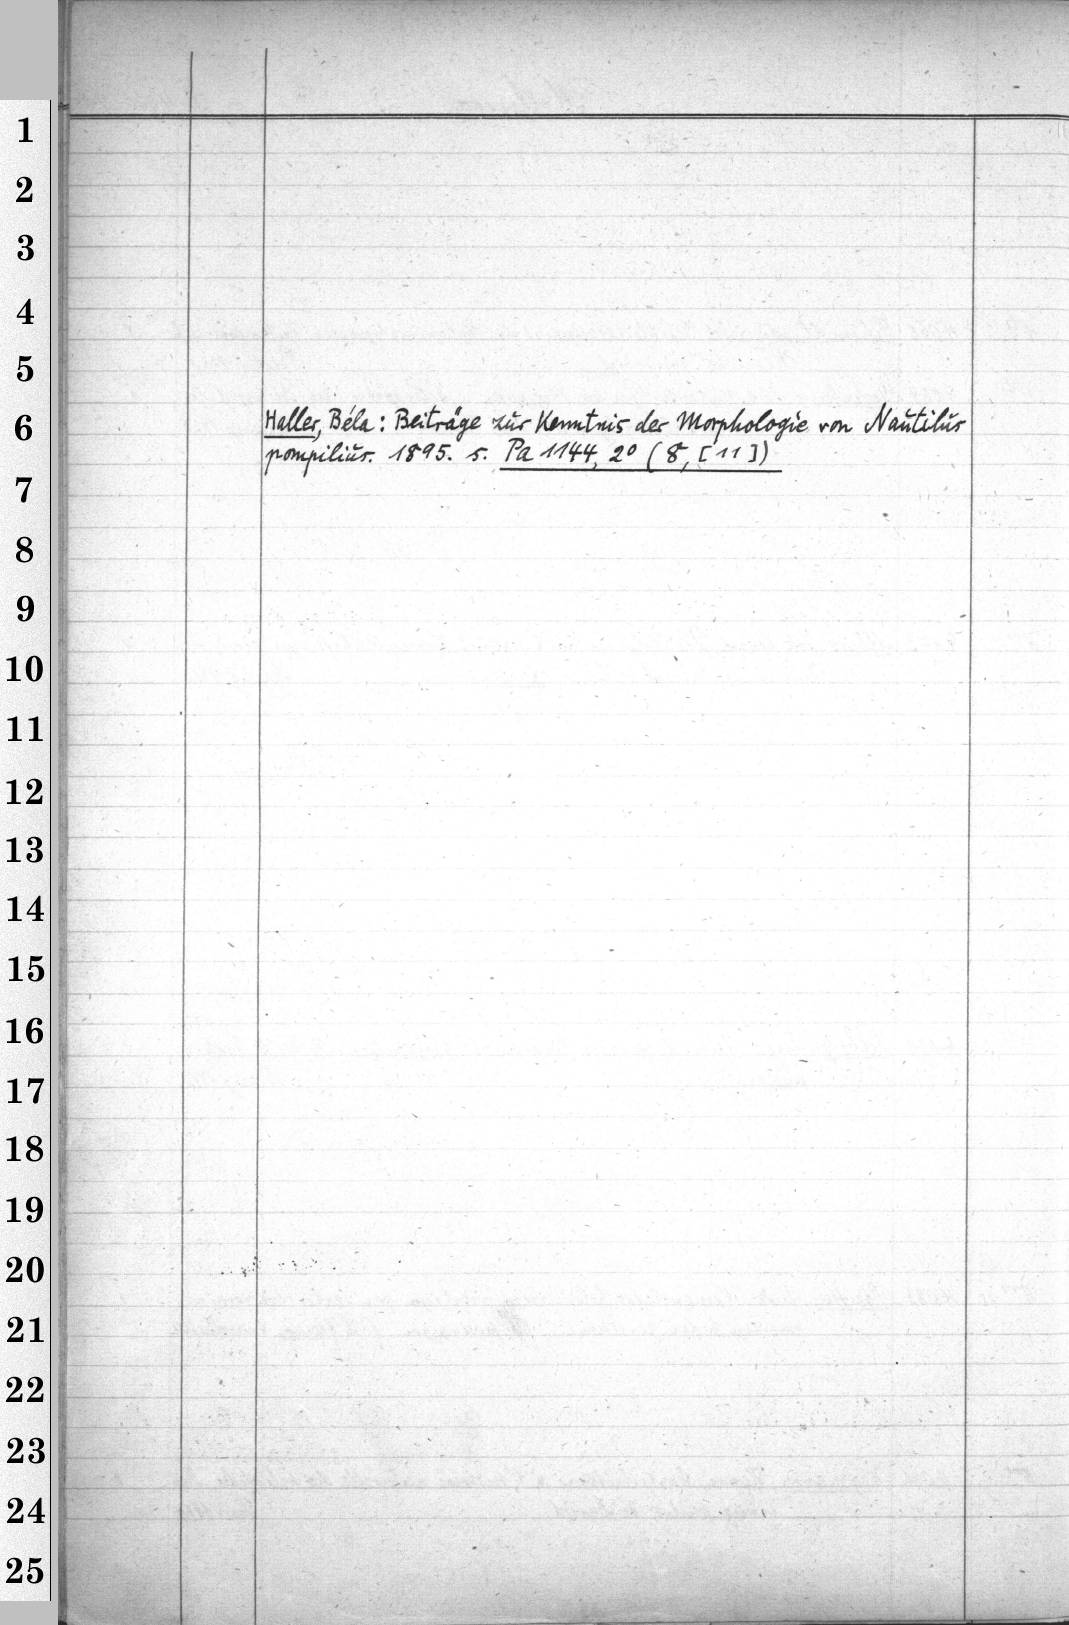 1
2
3
4
5
6
Haller, Béla: Beiträge zŭr Kenntnis der Morphologie von Naŭtilŭs
pompiliŭs. 1895. s. Pa 1144, 2° (8, [11])
7
8
9
10
11
12
13
14
15
16
17
18
19
20
21
22
23
24
25